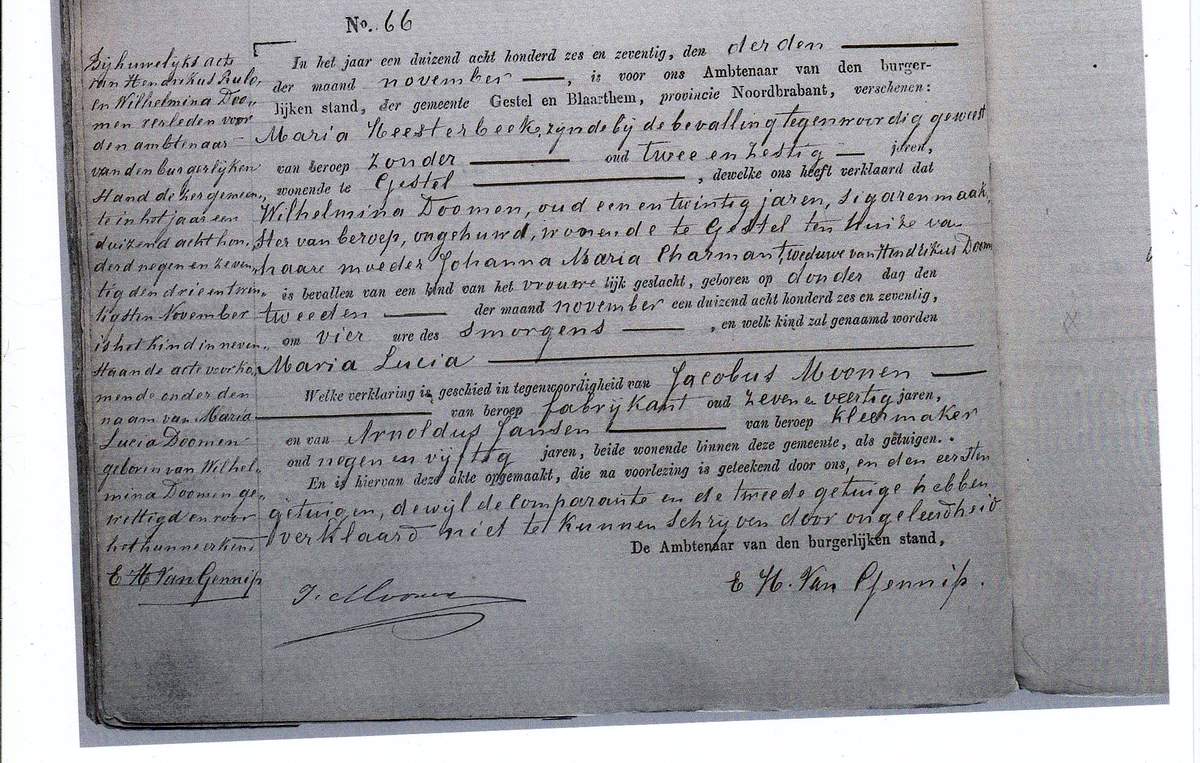 No. 66
In het jaar een duizend acht honderd zes en zeventig, den derden
der maand november, is voor ons Ambtenaar van den burger-
lijken stand, der gemeente Gestel en Blaarthem, provincie Noordbrabant, verschenen:
Maria Heesterbeek, zijnde bij de bevalling tegenwoordig geweest
van beroep zonder oud twee en zestig jaren,
wonende te Gestel, dewelke ons heeft verklaard dat
Wilhelmina Doomen, oud een en twintig jaren, sigarenmaak
ster van beroep, ongehuwd, wonende te Gestel ten huize va
haare moeder Johanna Maria Charman weduwe van Hendrikus Doom
is bevallen van een kind van het vrouwelijk geslacht, geboren op donder dag den
tweeden der maand november een duizend acht honderd zes en zeventig,
om vier ure des smorgens, en welk kind zal genaamd worden
Maria Lucia
Welke verklaring is geschied in tegenwoordigheid van Jacobus Moonen
van beroep fabrijkant oud zeven e veertig jaren,
en van Arnoldus Jansen van beroep kleermaker
oud negen en vijftig jaren, beide wonende binnen deze gemeente, als getuigen.
En is hiervan deze akte opgemaakt, die na voorlezing is geteekend door ons, en den eersten
getuigen, dewijl de comparante en de tweede getuige hebben
verklaard niet te kunnen schrijven door ongeleerdheid
De Ambtenaar van den burgerlijken stand,
E H. Van Gennip.
J. Moonen
Bij huwelijks acte
van Hendrikus
en Wilhelmina Doo-
men verleden voor
den ambtenaar
van den burgerlijken
Stand dezer gemeen,
te in het jaar een
duizend acht hon,
derd negen en zeven,
tig den drie en twin,
tigsten November
is het kind in neven,
staande acte voorko,
mende onder den
naam van Maria
Lucia Doomen
geboren van Wilhel,
mina Doomen ge,
wettigd en voor
het hunne erkend
E H Van Gennip